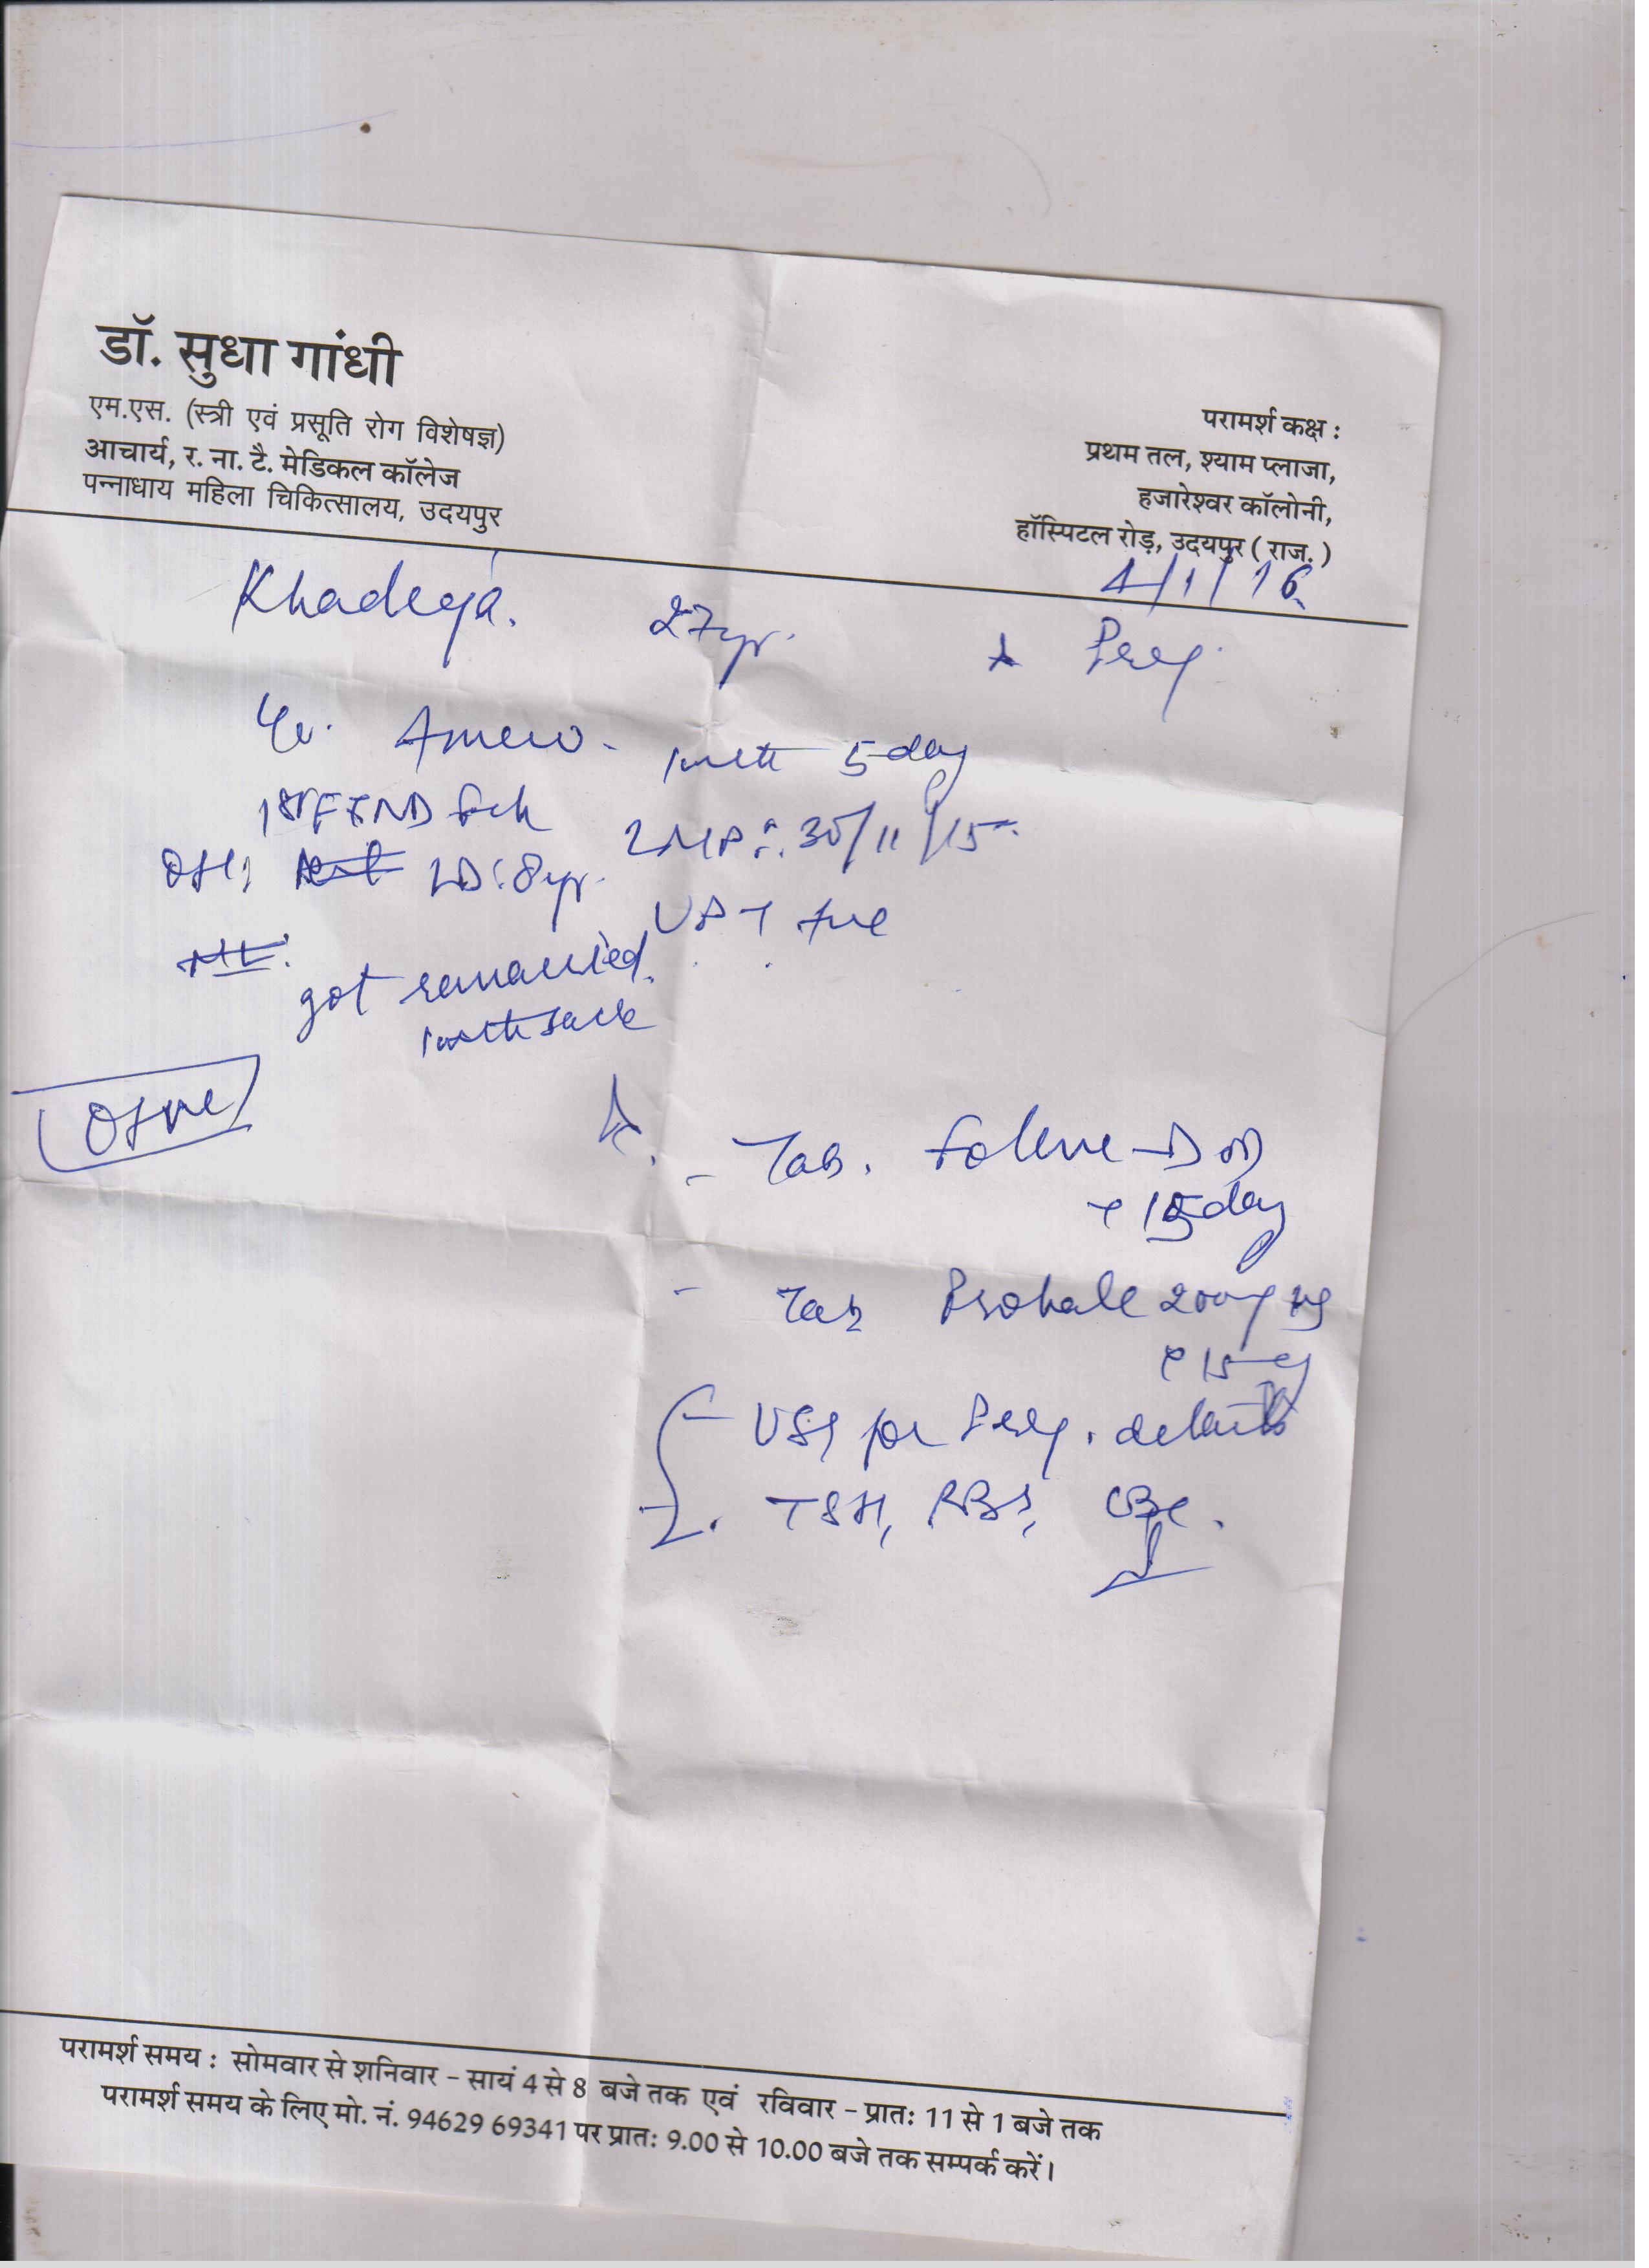 डॉ. सुधा गांधी
एम.एस. (स्त्री एवं प्रसूति रोग विशेषज्ञ)
आचार्य, र. ना. टै. मेडिकल कॉलेज
पन्नाधाय महिला चिकित्सालय, उदयपुर
परामर्श कक्ष :
प्रथम तल, श्याम प्लाजा,
हजारेश्वर कॉलोनी,
हॉस्पिटल रोड़, उदयपुर ( राज. )
4/1/16
Khadeeja. 27yr. Preg.
5 day
1st FTND
LMP: 30/11/15
OH: LD: 8yr.
UPT +ve
got remarried.
O +ve
- Tab. OD
15 day
- Tab 200
15
- USG for Preg. details
- TSH, RBS, CBC.
परामर्श समय : सोमवार से शनिवार - सायं 4 से 8 बजे तक एवं रविवार - प्रातः 11 से 1 बजे तक
परामर्श समय के लिए मो. नं. 94629 69341 पर प्रातः 9.00 से 10.00 बजे तक सम्पर्क करें।